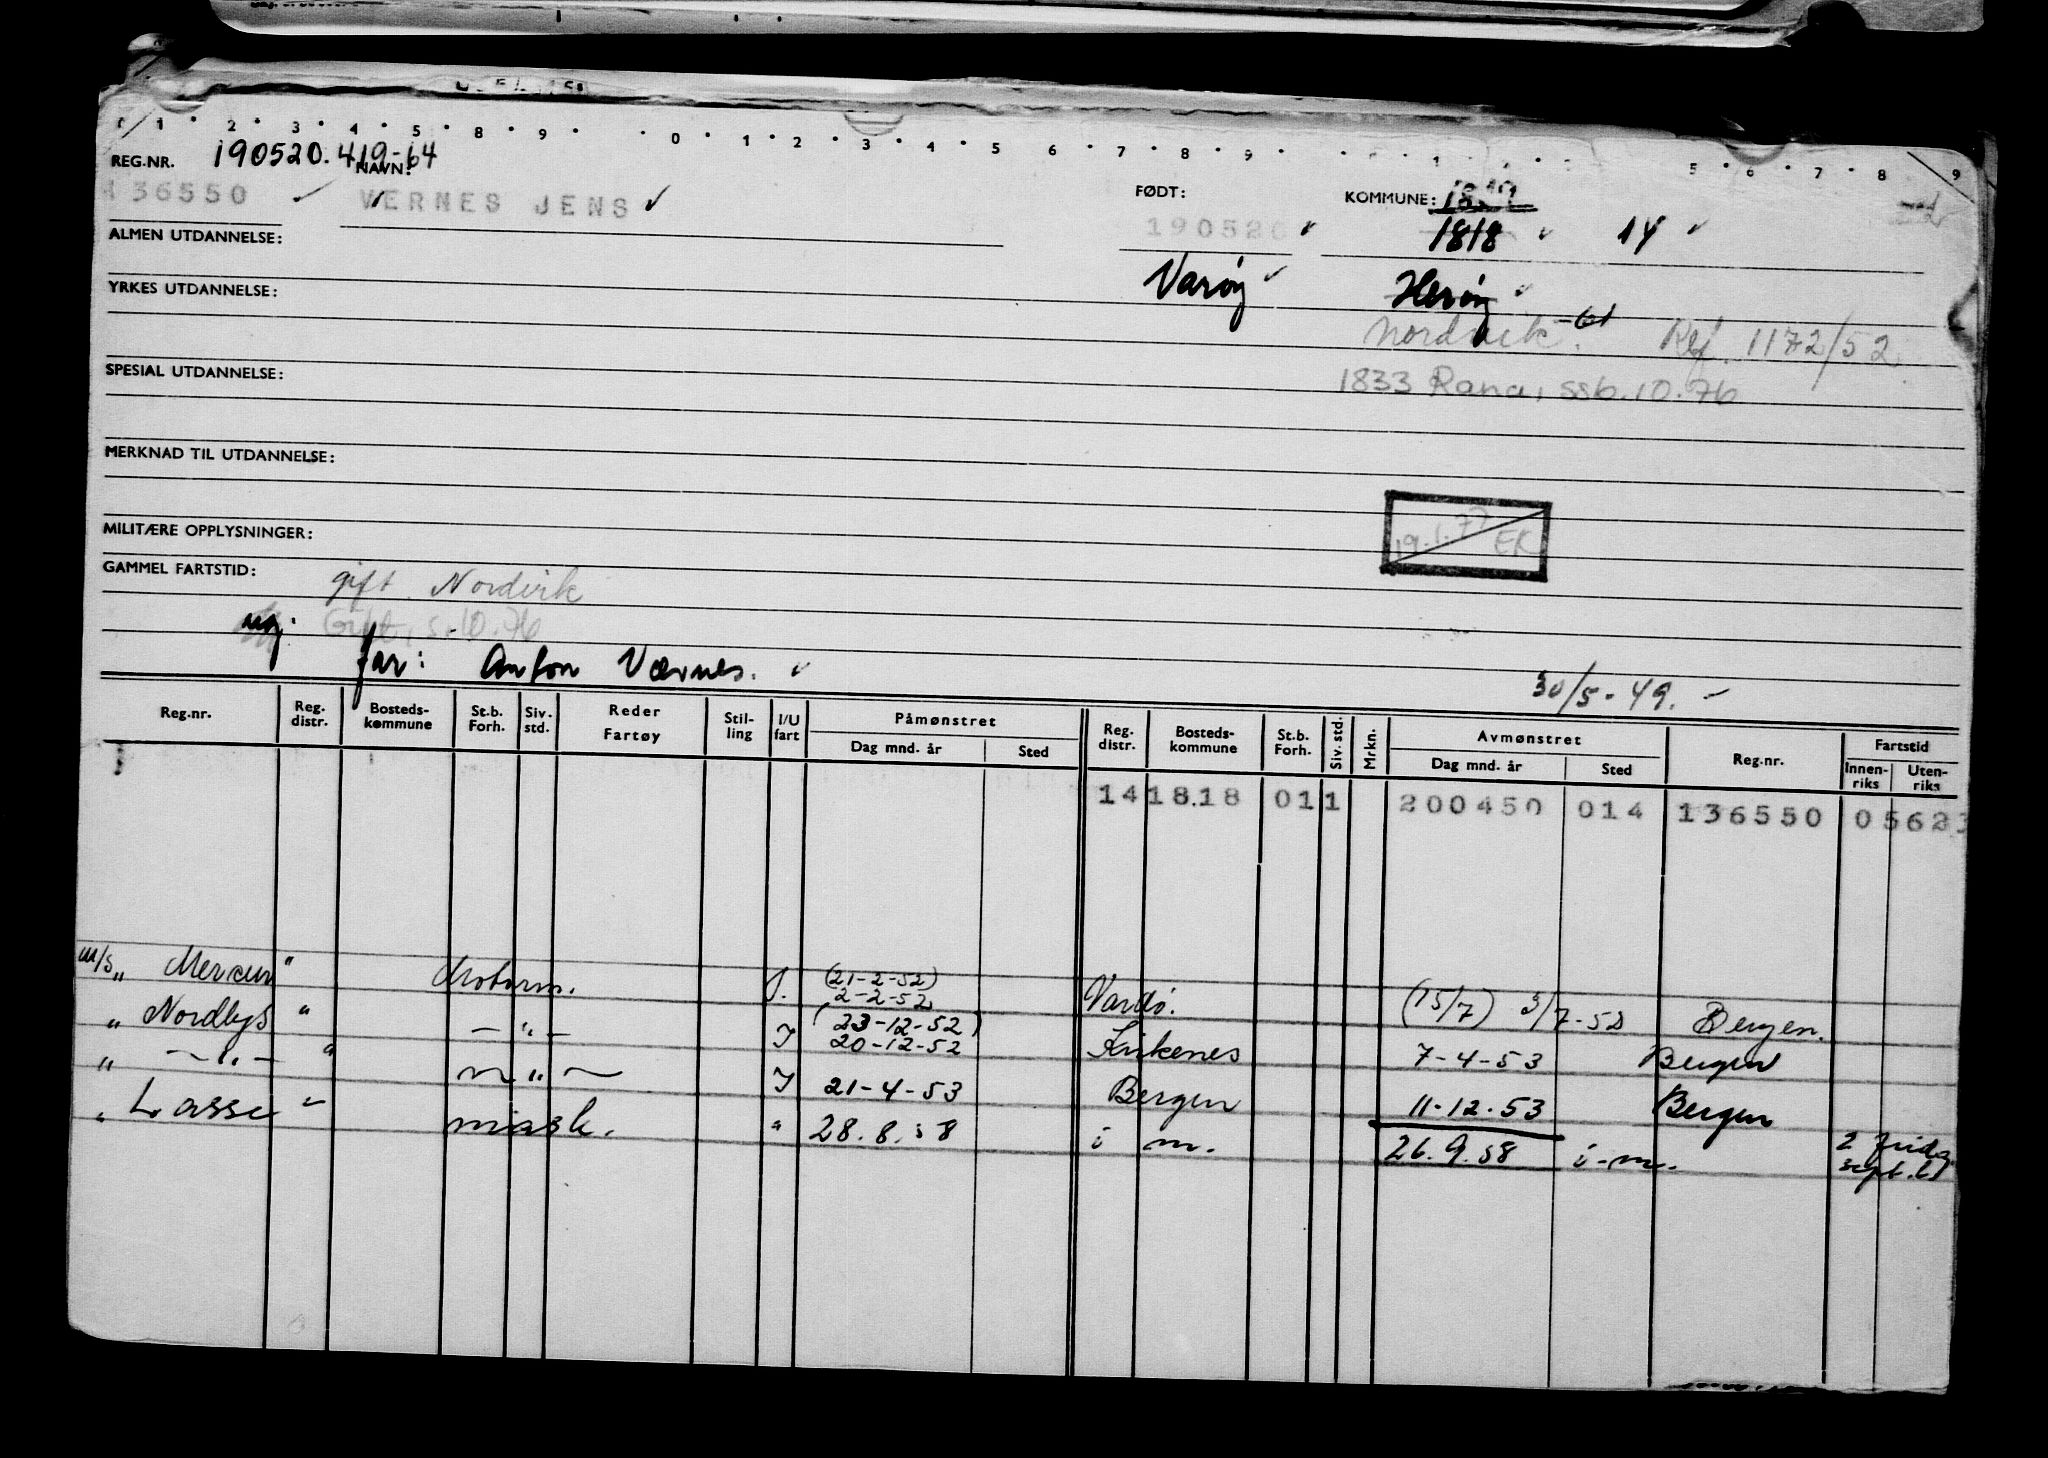 1 2 3 4 5 8 9 0 1 2 3 4 5 6 7 8 9 1 5 6 7 8 9
REG.NR. 190520.419-64 NAVN: FØDT: KOMMUNE:
136550 VERNES JENS 190520 1818 14
ALMEN UTDANNELSE:
Varøy Herøy
YRKES UTDANNELSE:
Nordvik-61 Ref. 1172/52
SPESIAL UTDANNELSE: 1833 Rana, ssb.10.76
MERKNAD TIL UTDANNELSE:
MILITÆRE OPPLYSNINGER: 19.1.77 EK
GAMMEL FARTSTID: gift Nordvik
ug. Gift, s.10.76
far: Anton Værnes.
30/5-49.
Reg.nr. Reg. distr. Bosteds-kommune St.b. Forh. Siv. std. Reder Fartøy Stil-ling I/U fart Påmønstret Dag mnd. år Sted Reg. distr. Bosteds-kommune St.b. Forh. Siv. std. Mrkn. Avmønstret Dag mnd. år Sted Reg.nr. Fartstid Innen-riks Uten-riks
14 18.18 01 1 200450 014 136550 05623
m/s "Mercur" Motorm. I. (21-2-52) 2-2-52 Vardø. (15/7) 3/7-52 Bergen.
" Nordlys " — " — I (23-12-52) 20-12-52 Kirkenes 7-4-53 Bergen
" — " — " — " — I 21-4-53 Bergen 11-12-53 Bergen
" Lasse " mask. " 28.8.58 i m. 26.9.58 i-m. sept. 61